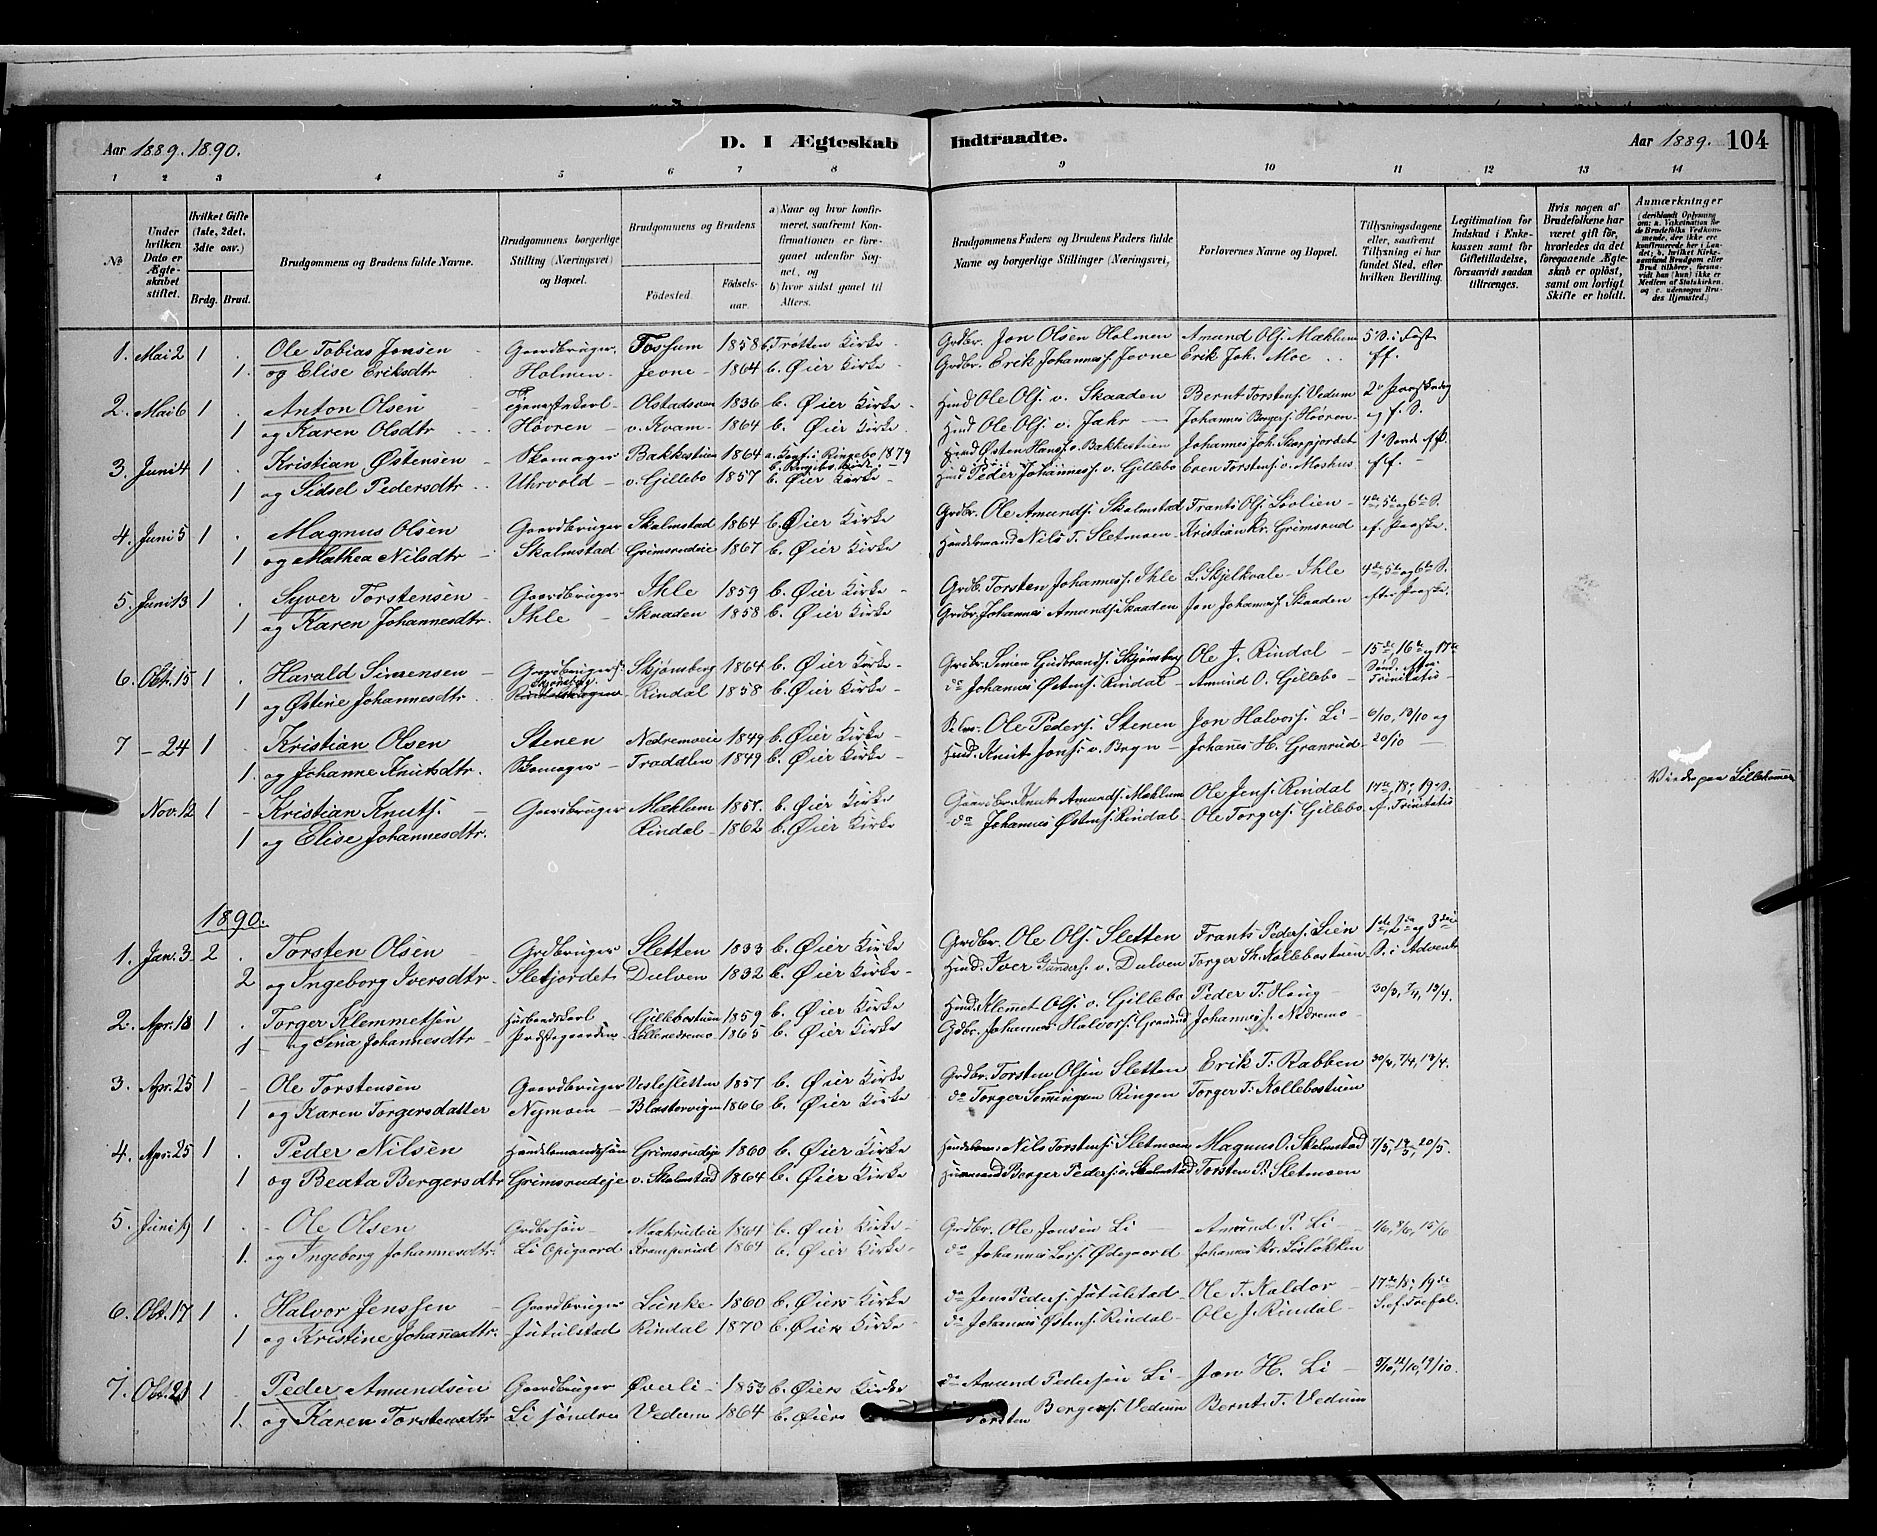 Aar 1889. 1890. D. I Ægteskab Indtraadte. Aar 1889. 104
1 2 3 4 5 6 7 8 9 10 11 12 13 14
No
Under hvilken Dato er Ægteskabet stiftet.
Hvilket Gifte (1ste, 2det, 3die osv.)
Brdg. Brud.
Brudgommens og Brudens fulde Navne.
Brudgommens borgerlige Stilling (Næringsvei) og Bopæl.
Brudgommens og Brudens
Fødested. Fødselsaar.
a) Naar og hvor konfirmeret, saafremt Konfirmationen er foregaaet udenfor Sognet, og
b) hvor sidst gaaet til Alters.
Brudgommens Faders og Brudens Faders fulde Navne og borgerlige Stillinger (Næringsvei).
Forlovernes Navne og Bopæl.
Tillysningsdagene eller, saafremt Tillysning ei har fundet Sted, efter hvilken Bevilling.
Legitimation for Indskud i Enkekassen samt for Giftetilladelse, forsaavidt saadan tiltrænges.
Hvis nogen af Brudefolkene har været gift før, hvorledes da det foregaaende Ægteskab er opløst, samt om lovligt Skifte er holdt.
Anmærkninger
1. Mai 2 1 . Ole Tobias Jonsen Gaardbruger Fossum 1858 b. Trøtten Kirke Grdbr. Jon Olsen Holmen Amund Ols. Mæhlum 5' S. i Fast
1. og Elise Eriksdtr Holmen Jevne 1864 b. Øier Kirke Grdbr. Erik Johanness. Jevne Erik Joh. Moe ff.
2. Mai 6 1 . Anton Olsen Tjenestekarl Olstadsveen 1836 b. Øier Kirke Husd. Ole Ols. v. Skaaden Bernt Torstens. Vedum 2' Paaskedag
1 og Karen Olsdtr Høvren v. Kvam 1864 b. Øier Kirke Husd. Ole Ols. v. Jahr Johannes Bergers. Høvren og f. S.
3. Juni 4 1 . Kristian Østensen Skomager Bakkestuen 1864 a. Konf. i Ringebo 1879 Husd. Østen Hans. v. Bakkestuen Johannes Joh. Skappjordet 1' Sønd. ef P.
b. Ringebo Kirke
1 og Sidsel Pedersdtr Uhrvold v. Gillebo 1857 b. Øier Kirke Husd. Peder Johanness. v. Gillebo Even Torstens. v. Moshus ff.
4. Juni 5 1 . Magnus Olsen Gaardbruger Skalmstad 1864 b. Øier Kirke Grdbr. Ole Amunds. Skalmstad Frants Ols. Lovlien 4de, 5te og 6te S.
1 og Mathea Nilsdtr Skalmstad Grimsrudeie 1867 b. Øier Kirke Handelsmand Nils T. Sletmoen Kristian Kr. Grimsrud ef. Paaske.
5. Juni 13 1 . Syver Torstensen Gaardbruger Ihle 1859 b. Øier Kirke Grdb. Torsten Johanness. Ihle L. Skjelkvale Ihle 4de, 5te og 6te S.
1 og Karen Johannesdtr. Ihle Skaaden 1858 b. Øier Kirke Grdbr. Johannes Amunds. Skaaden Jon Johannes. Skaaden efter Paaske.
6. Okt. 15 1 . Harald Simensen Gaardbruger Skjønsberg 1864 b. Øier Kirke Grdbr. Simen Gudbrands. Skjønsberg Ole J. Rindal 15de, 16de og 17de
1 og Østine Johannesdtr. Rindal 1858 b. Øier Kirke do Johannes Østens. Rindal Amund O. Gillebo Sønd. efter Trinitatis
7 - 24 1 . Kristian Olsen Stenen Nedremoeie 1849 b. Øier Kirke Ole Peders. Stenen Jon Halvors. Li 6/10, 13/10 og
1. og Johanne Knutsdtr. Skomager Traddlen 1849 b. Øier Kirke Husd. Knut Jons. v. Bryn Johannes H. Granrud 20/10
Nov. 12 1 - Kristian Knuts. Gaardbruger Mæhlum 1857. b. Øier Kirke Gaardbr. Knut Amunds. Mæhlum Ole Jens. Rindal 17de, 18, 19 S.
1 og Elise Johannesdtr. Rindal 1862 b. Øier Kirke do Johannes Østens. Rindal Ole Torgers. Gillebo ef. Trinitatis
1890.
1. Jan. 3 2 . Torsten Olsen Grdbruger Sletten 1833 b. Øier Kirke Grdbr. Ole Ols. Sletten Frants Peders. Lien 1de, 2de og 3die
2 og Ingeborg Iversdtr. Sletjordet Dulven 1832 b. Øier Kirke Husd. Iver Gunders. v. Dulven Torger Th. Kollebostuen S. i Advent
2. Apr. 18 1 . Torger Klemmetsen Gillebostuen 1859 b. Øier Kirke Husd. Klemet Ols. v. Gillebo Peder T. Haug 30/3, 7/4, 13/4.
1 og Sina Johannesdtr Prestegaarden Lillenedremo 1865 b. Øier Kirke Gdbr. Johannes Halvors. Granrud Johannes J. Nedremo
3. Apr. 25 1 - Ole Torstensen Gaardbruger Veslesletten 1857 b. Øier Kirke Grdbr. Torsten Olsen Sletten Erik T. Rabben 30/3, 7/4, 13/4.
1 og Karen Torgersdatter Nymoen Blastervigen 1866 b. Øier Kirke do Torger Ringen Torger T. Kollebostuen
4. Apr. 25 1 . Peder Nilsen Handelsmandssøn Grimsrudeje 1860 b. Øier Kirke Handelsm. Nils Torstens. Sletmoen Magnus O. Skalmstad 7/5, 14/5, 20/5.
1 og Beata Bergersdtr Grimsrudeje v. Skalmstad 1864 b. Øier Kirke Husmand Berger Peders. v. Skalmstad Torsten P. Sletmoen
5. Juni 19 1 . Ole Olsen Grdbrsøn Maahrudeie 1864 b. Øier Kirke Grdbr. Ole Jonsen Li Amund P. Li 1/6, 8/6, 15/6
1. og Ingeborg Johannesdtr. Li Opigaard Kramperud 1864 b. Øier Kirke do Johannes Lars. Ødegaard Johannes Kr. Lisløkken
6. Okt. 17 1 . Halvor Jenssen Gaardbruger Lunke 1860 b. Øiers Kirke do Jens Peders. Jutulstad Ole T. Kaldor 17de, 18, 19de
1 og Kristine Johannesdtr. Jutulstad Rindal 1870 b. Øiers Kirke do Johannes Østens. Rindal Ole J. Rindal S. ef. Trefol.
7. Okt. 21 1 . Peder Amundsen Gaardbruger Øverli 1853 b. Øiers Kirke do Amund Pedersen Li Jon H. Li 5/10, 12/10, 19/10.
1. og Karen Torstensdtr Li søndre Vedum 1864 b. Øiers Torsten Bergers. Vedum Bernt T. Vedum